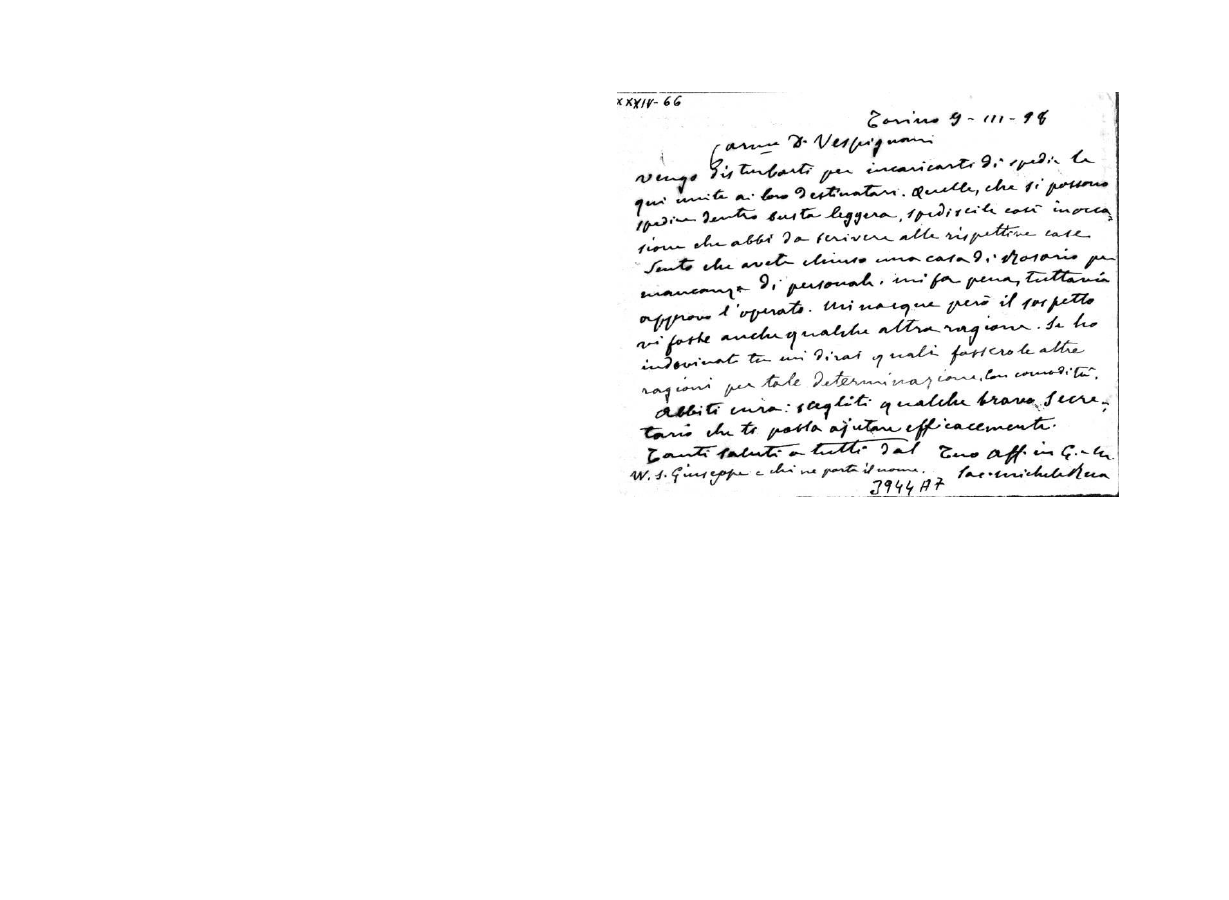 XXXIV-66
Torino 9-III-98
Carme D. Vespignani
vengo disturbarti per incaricarti di spedir le
qui unite ai loro destinatari. Quelle, che si possono
spedire dentro busta leggera, spediscile così in occa-
sione che abbi da scrivere alle rispettive case
Sento che avete chiuso una casa di Rosario per
mancanza di personale. mi fa pena, tuttavia
approvo l'operato. Mi nacque però il sospetto
vi fosse anche qualche altra ragione. Se ho
indovinato tu mi dirai quali fossero le altre
ragioni per tale determinazione, con comodità.
Abbiti cura: scegliti qualche bravo Secre-
tario che ti possa ajutare efficacemente.
Tanti saluti a tutti dal Tuo aff. in G. e M.
W. S. Giuseppe e chi ne porta il nome. Sac. Michele Rua
3944 A7